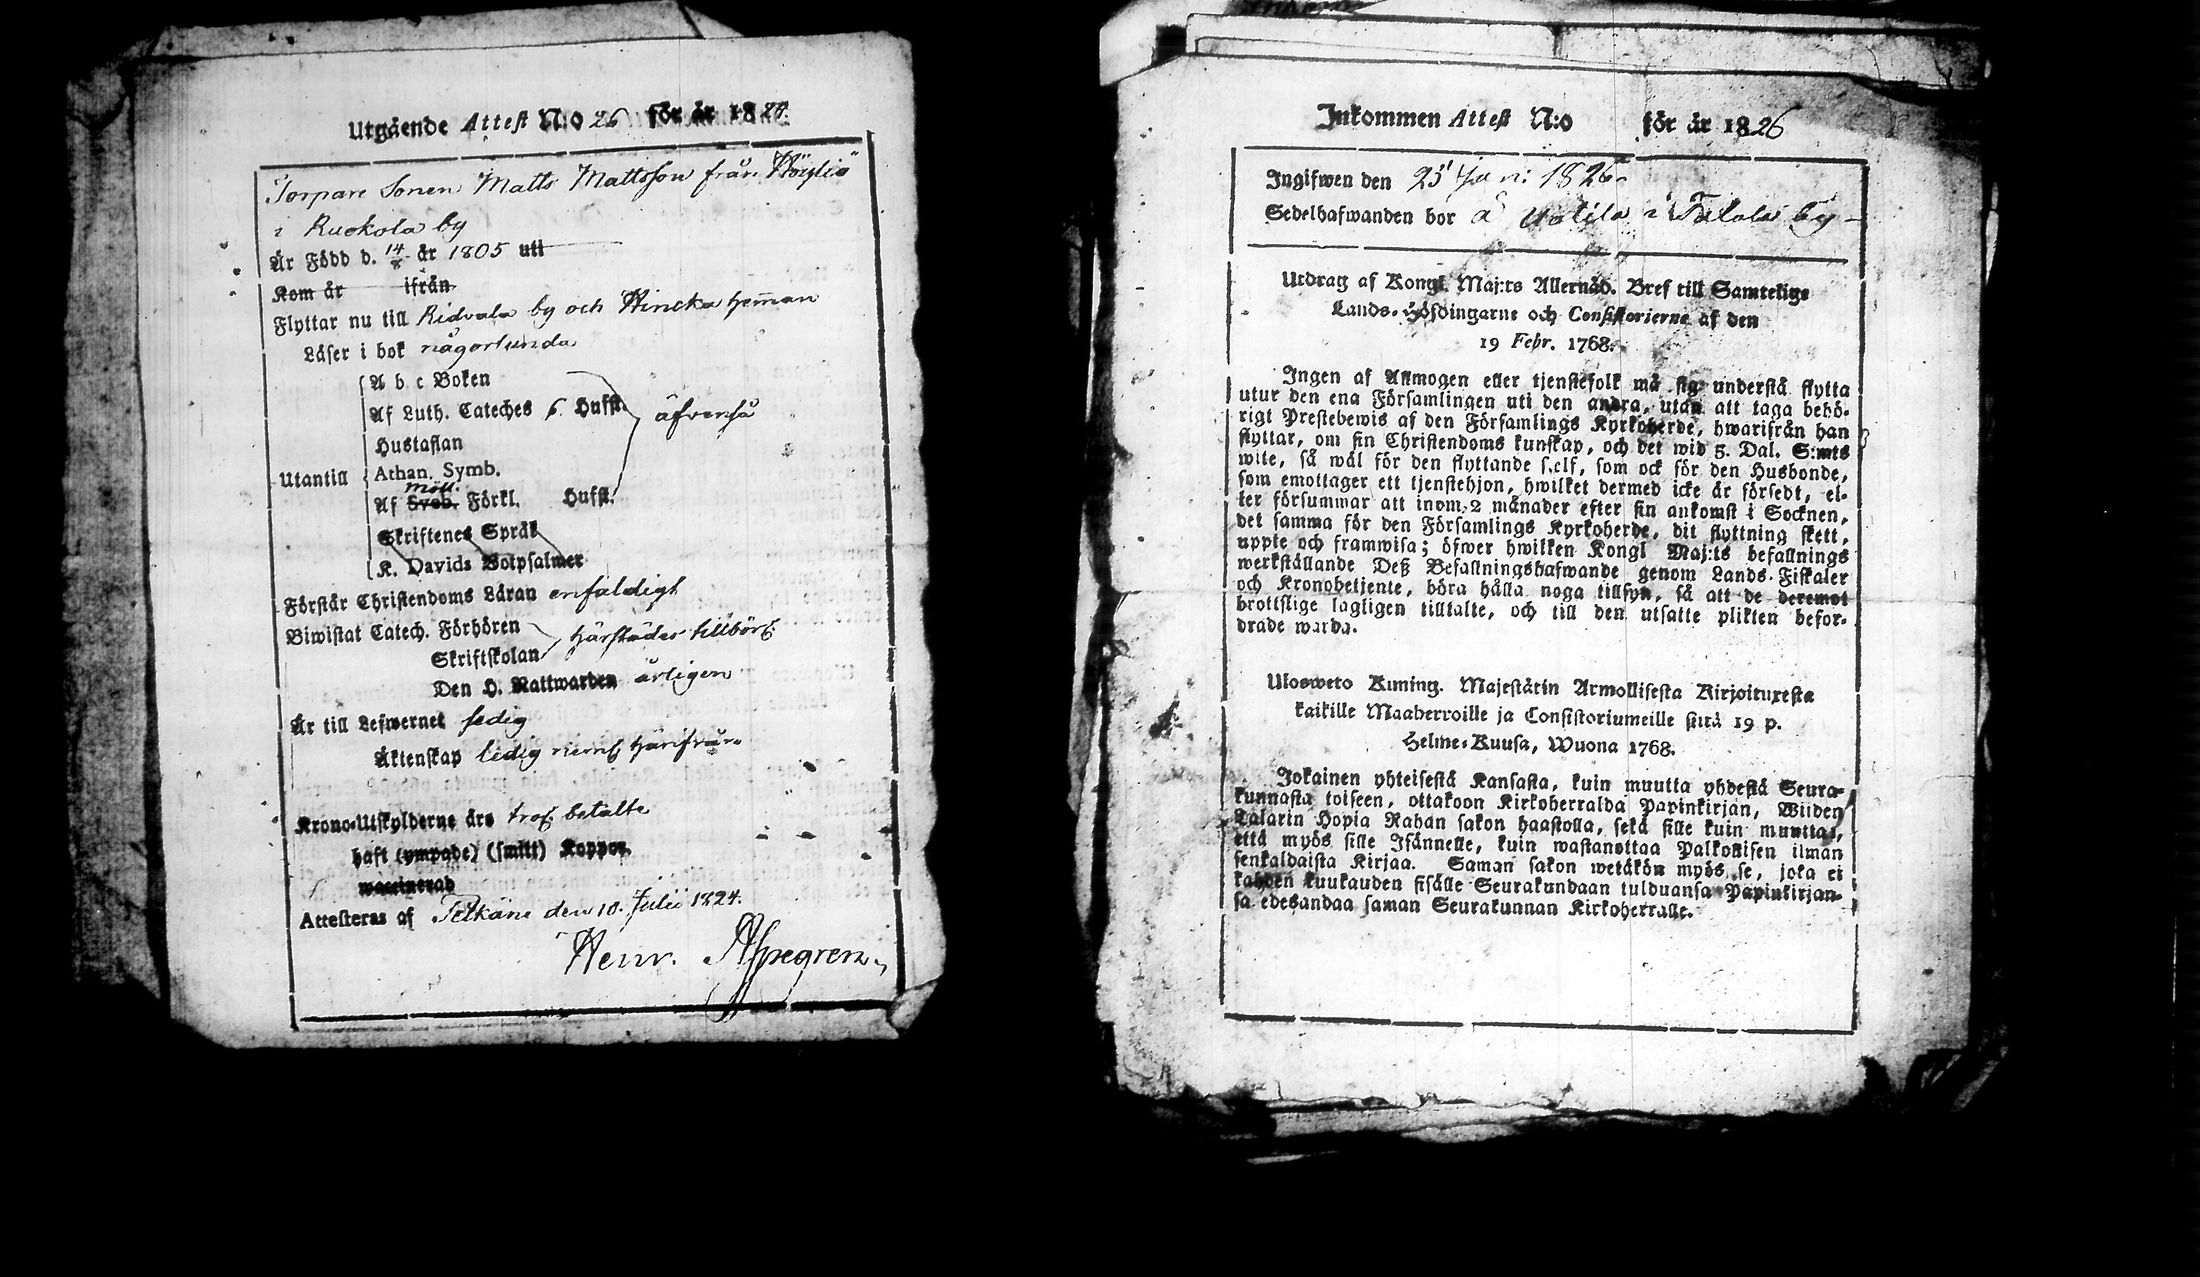 Utgående Attest N:o 26 för år 1824.
Torpare Sonen Matts Mattsson från Höyliö
i Ruokola by
Är Född d. 14/8 år 1805 uti
Kom år ifrån
Flyttar nu till Ridvala by och Hincka heman
Läser i bok någorlunda
A b c Boken
Af Luth. Cateches 6. Hufst. äfvenså
Hustaflan
Utantill Athan. Symb.
Möll.
Af Sveb. Förkl. Hufst.
Skriftenes Språk
K. Davids Botpsalmer
Förstår Christendoms Läran enfaldigt
Biwistat Catech. Förhören härstädes tillbörl.
Skriftskolan
Den H. Nattwarden årligen
Är till Lefwernet fedig
Äktenskap ledig härifrån
Krono-Utskylderne äro betalte
haft (ympade) (smitt) Koppor.
waccinerad
Attesteras af Pelkäne den 10. Julii 1824.
Henr.
Inkommen Attest N:o för år 1826
Ingifwen den 1826.
Sedelhafwanden bor å Uotila i by
Utdrag af Kongl. Maj:ts Allernåd. Bref till Samtelige
Lands-Höfdingarne och Consistorierne af den
19 Febr. 1768.
Ingen af Allmogen eller tjenstefolk må sig understå flytta
utur den ena Församlingen uti den andra, utan att taga behö-
rigt Prestebewis af den Församlings Kyrkoherde, hwarifrån han
flyttar, om sin Christendoms kunskap, och det wid 5. Dal. S:mts
wite, så wäl för den flyttande self, som ock för den Husbonde,
som emottager ett tjenstehjon, hwilket dermed icke är försedt, el-
ler försummar att inom 2 månader efter sin ankomst i Socknen,
det samma för den Församlings Kyrkoherde, dit flyttning skett,
uppte och framwisa; öfwer hwilken Kongl Maj:ts befallnings
werkställande Deß Befallningshafwande genom Lands-Fiskaler
och Kronobetjente, böra hålla noga tillsyn, så att de deremot
brottslige lagligen tilltalte, och till den utsatte plikten befor-
drade warda.
Ulosweto Kuning. Majestätin Armollisesta Kirjoituxesta
kaikille Maaherroille ja Consistoriumeille siitä 19 p.
Helme-Kuusa, Wuona 1768.
Jokainen yhteisestä Kansasta, kuin muutta yhdestä Seura-
kunnasta toiseen, ottakoon Kirkoherralda Papinkirjan, Wiiden
Talarin Hopia Rahan sakon haastolla, sekä sille kuin muuttaa,
että myös sille Isännelle, kuin wastanottaa Palkollisen ilman
senkaldaista Kirjaa. Saman sakon wetäkön myös se, joka ei
kahden kuukauden sisälle Seurakundaan tulduansa Papinkirjan-
sa edesandaa saman Seurakunnan Kirkoherralle.